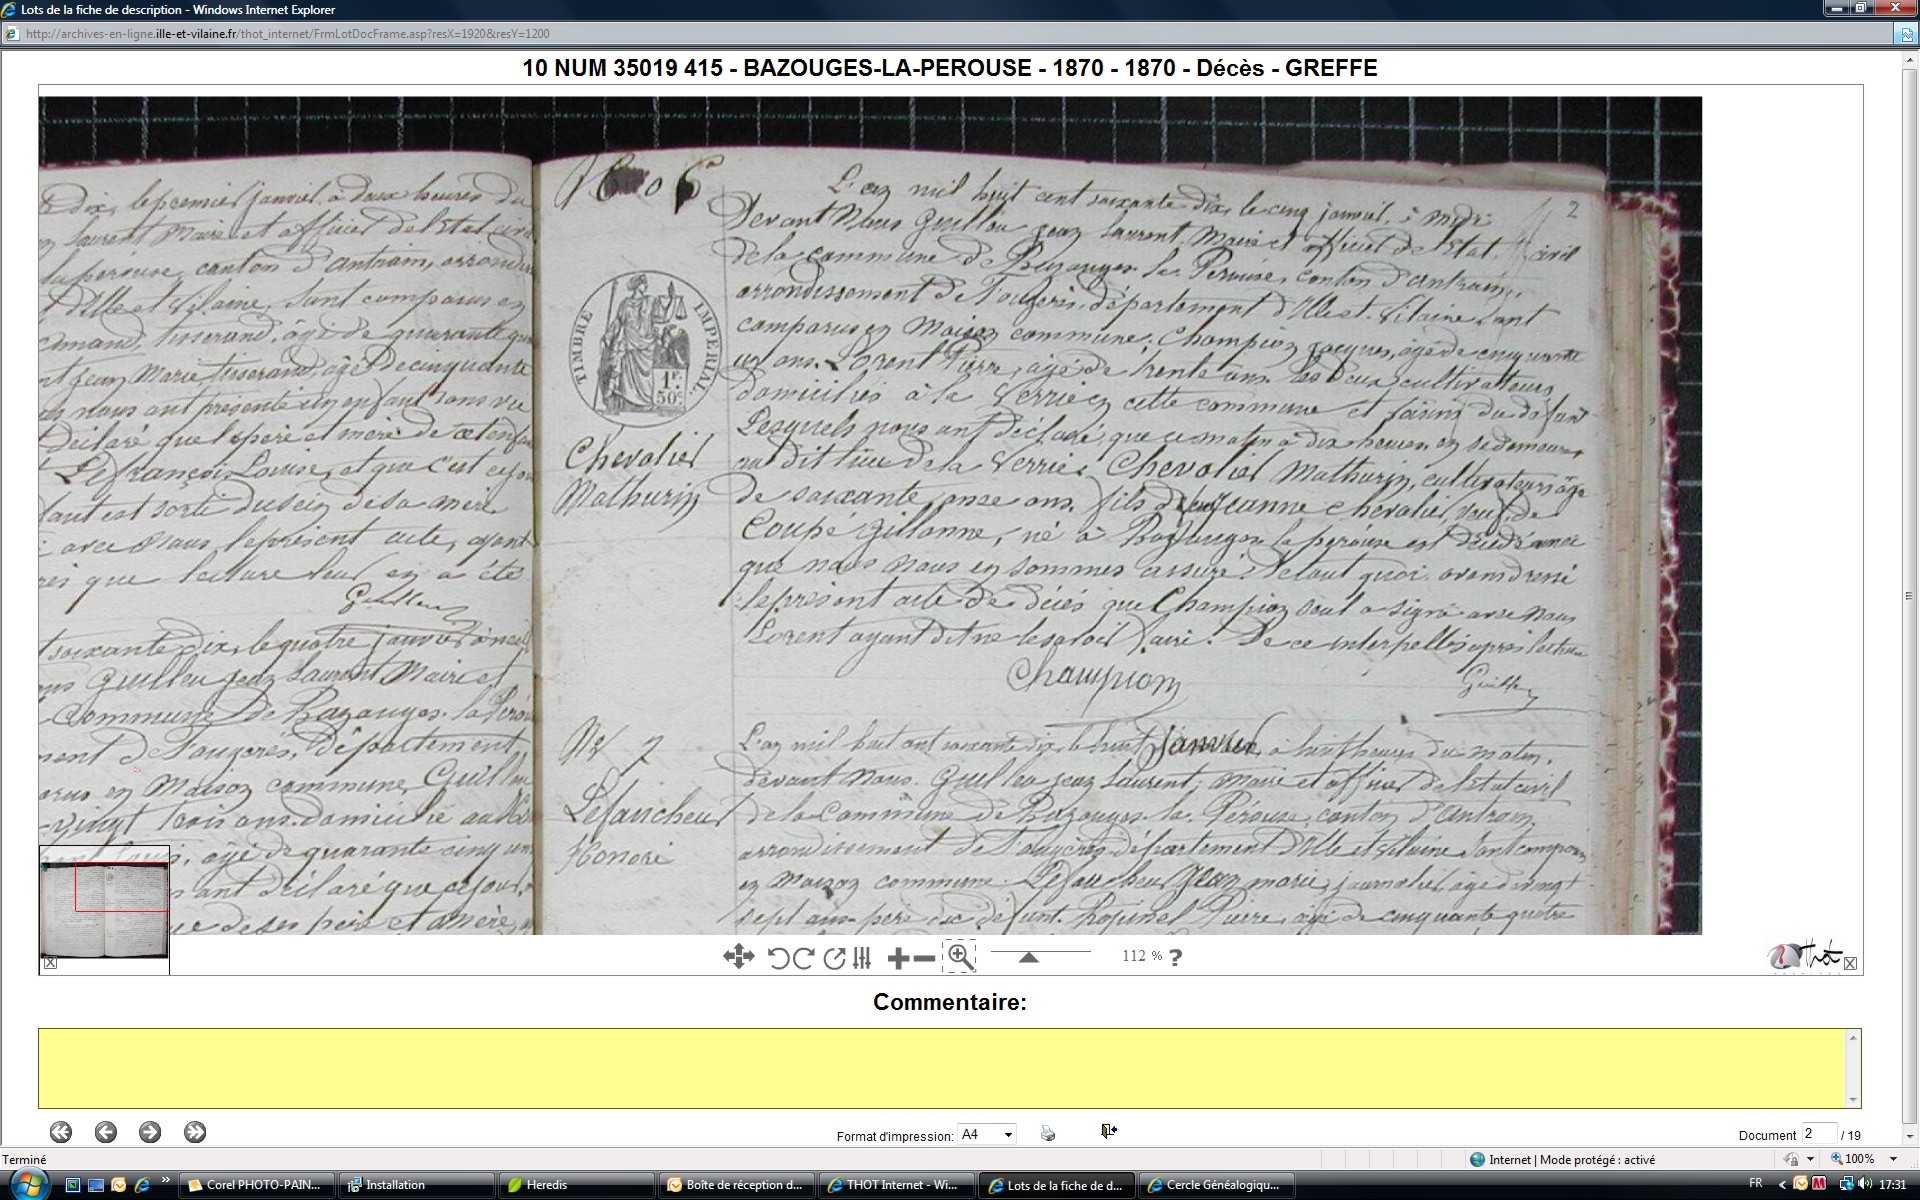 Lots de la fiche de description - Windows Internet Explorer
http://archives-en-ligne.ille-et-vilaine.fr/thot_internet/FrmLotDocFrame.asp?resX=1920&resY=1200
10 NUM 35019 415 - BAZOUGES-LA-PEROUSE - 1870 - 1870 - Décès - GREFFE
Dix, le premier janvier à deux heures du
Laurent Maire et officier de l'Etat civil
la perouse, canton d'Antrain, arrondis
d'Ille et Vilaine, Sont comparus en
tisserand, âgé de quarante
Jean Marie tisserand, âgé de cinquante
nous ont présenté un enfant sans vie
déclaré que le père et mère de cet enfant
Lefrançois Louise, et que c'est ce jour
est sorti du sein de sa mère
avec Nous le présent acte, ayant
que lecture leur en a été
Guillou
soixante dix, le quatre janvier à
Guillou jean Laurent Maire et
Commune de Bazouges-la-Pérou
ment de Fougères, département
en Maison commune, Guillou
-vingt trois ans, domicilié au
âgé de quarante cinq
ont déclaré que ce jour,
de ses père et mère,
N° 6
TIMBRE IMPERIAL.
1F.
50c
Chevalier
Mathurin
2
L'an mil huit cent soixante dix, le cinq janvier, à midi
Devant Nous Guillou jean Laurent, Maire et officier de l'Etat civil
de la commune de Bazouges la Perouse, canton d'Antrain,
arrondissement de Fougères, département d'Ille et Vilaine Sont
comparus en Maison commune, Champion jacques, âgé de cinquante
un ans. Lorent Pierre, âgé de trente ans. les deux cultivateurs,
domiciliés à la Verrie en cette commune et voisins du défunt
Lesquels nous ont déclaré, que ce matin à dix heures, en sa demeure
au dit lieu de la Verrie, Chevalier Mathurin, cultivateur, âgé
de soixante onze ans, fils de feu Jeanne Chevalier, veuf de
Coupé Gillonne, né à Bazouges la perouse est décédé ainsi
que nous Nous en sommes assuré. De tout quoi avons dressé
le présent acte de décès que Champion seul a signé avec Nous
Lorent ayant dit ne le savoir faire. De ce interpellés après lecture
Champion
Guillou
N° 7
Lefaucheur
Honoré
L'an mil huit cent soixante dix, le huit janvier, à huit heures du matin,
devant Nous. Guillou jean Laurent, Maire et officier de l'Etat civil
de la Commune de Bazouges la Pérouse, canton d'Antrain,
arrondissement de Fougères, département d'Ille et Vilaine Sont comparus
en Maison commune Lefaucheur Jean marie, journalier, âgé de vingt
sept ans père du défunt. Pierre, âgé de cinquante quatre
112 %
?
Thot
Commentaire:
Format d'impression: A4
Document 2 / 19
Terminé
Internet | Mode protégé : activé
100%
Corel PHOTO-PAIN...
Installation
Heredis
Boîte de réception d...
THOT Internet - Wi...
Lots de la fiche de d...
Cercle Généalogiqu...
FR
17:31